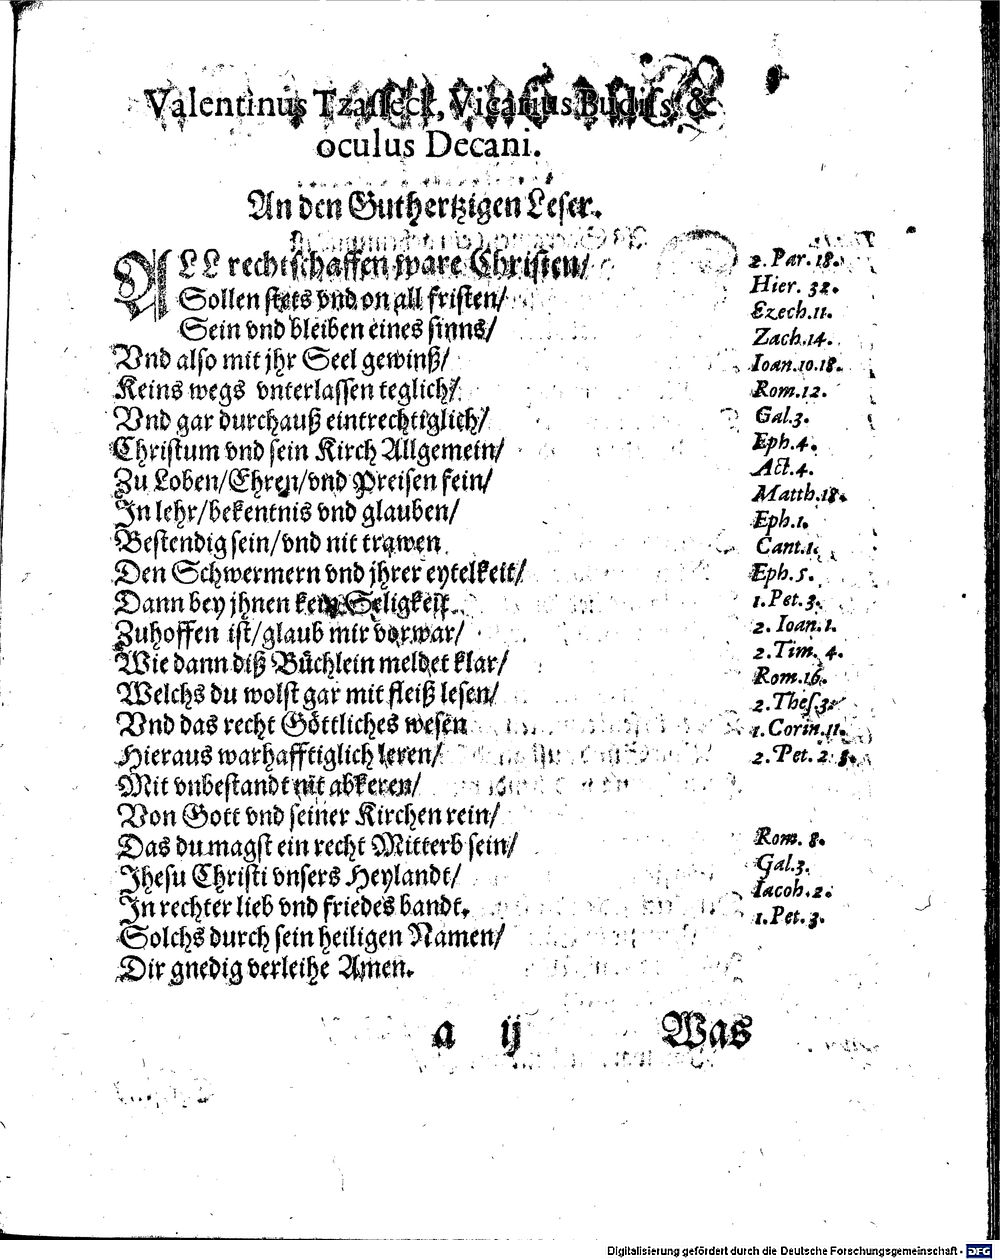 Valentinus Tzasleck, Vicarius Budiſs. &
oculus Decani.
An den Guthertzigen Leſer.
ALL rechtſchaffen ware Chriſten/
Sollen ſtets vnd on all friſten/
Sein vnd bleiben eines ſinns/
Vnd alſo mit jhr Seel gewinß/
Keins wegs vnterlaſſen teglich/
Vnd gar durchauß eintrechtiglich/
Chriſtum vnd ſein Kirch Allgemein/
Zu Loben/Ehren/vnd Preiſen fein/
In lehr/bekentnis vnd glauben/
Beſtendig ſein/vnd nit trawen
Den Schwermern vnd jhrer eytelkeit/
Dann bey jhnen kein Seligkeit
Zuhoffen iſt/glaub mir vorwar/
Wie dann diß Büchlein meldet klar/
Welchs du wolſt gar mit fleiß leſen/
Vnd das recht Göttliches weſen
Hieraus warhafftiglich leren/
Mit vnbeſtandt nit abkeren/
Von Gott vnd ſeiner Kirchen rein/
Das du magſt ein recht Mitterb ſein/
Jheſu Chriſti vnſers Heylandt/
In rechter lieb vnd friedes bandt.
Solchs durch ſein heiligen Namen/
Dir gnedig verleihe Amen.
2. Par. 18.
Hier. 32.
Ezech. 11.
Zach. 14.
Ioan. 10. 18.
Rom. 12.
Gal. 3.
Eph. 4.
Act. 4.
Matth. 18.
Eph. 1.
Cant. 1.
Eph. 5.
1. Pet. 3.
2. Ioan. 1.
2. Tim. 4.
Rom. 16.
2. Theſ. 3.
1. Corin. 11.
2. Pet. 2. 3.
Rom. 8.
Gal. 3.
Iacob. 2.
1. Pet. 3.
a ij Was
Digitalisierung gefördert durch die Deutsche Forschungsgemeinschaft - DFG